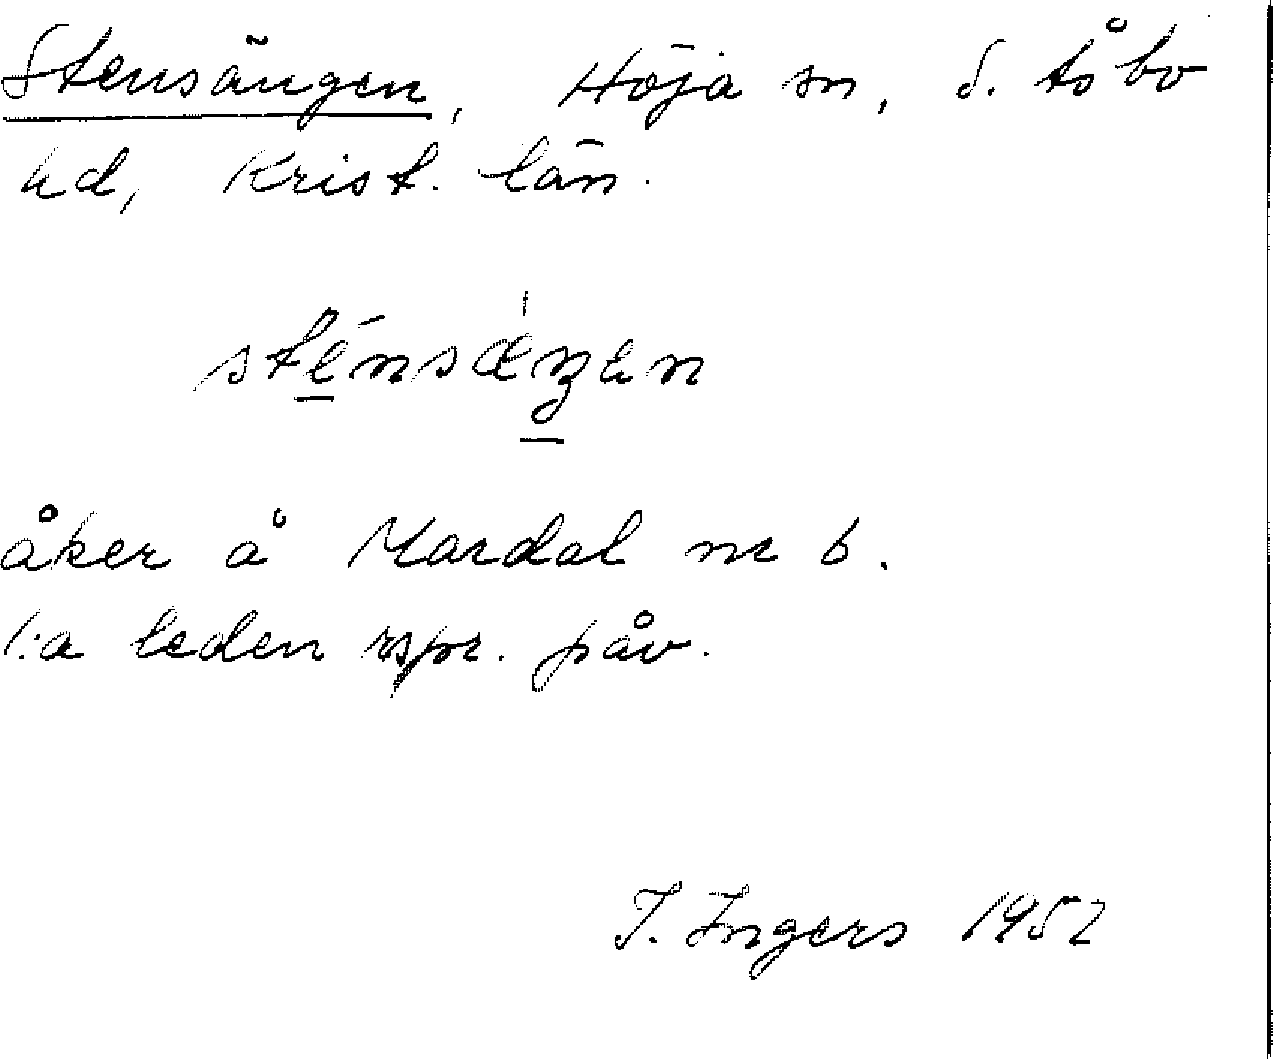 Stensängen, Höja sn, S. Åsbo
hd, Krist. län.
åker å Mardal nr 6.
1:a leden rspr. påv.
I. Ingers 1952